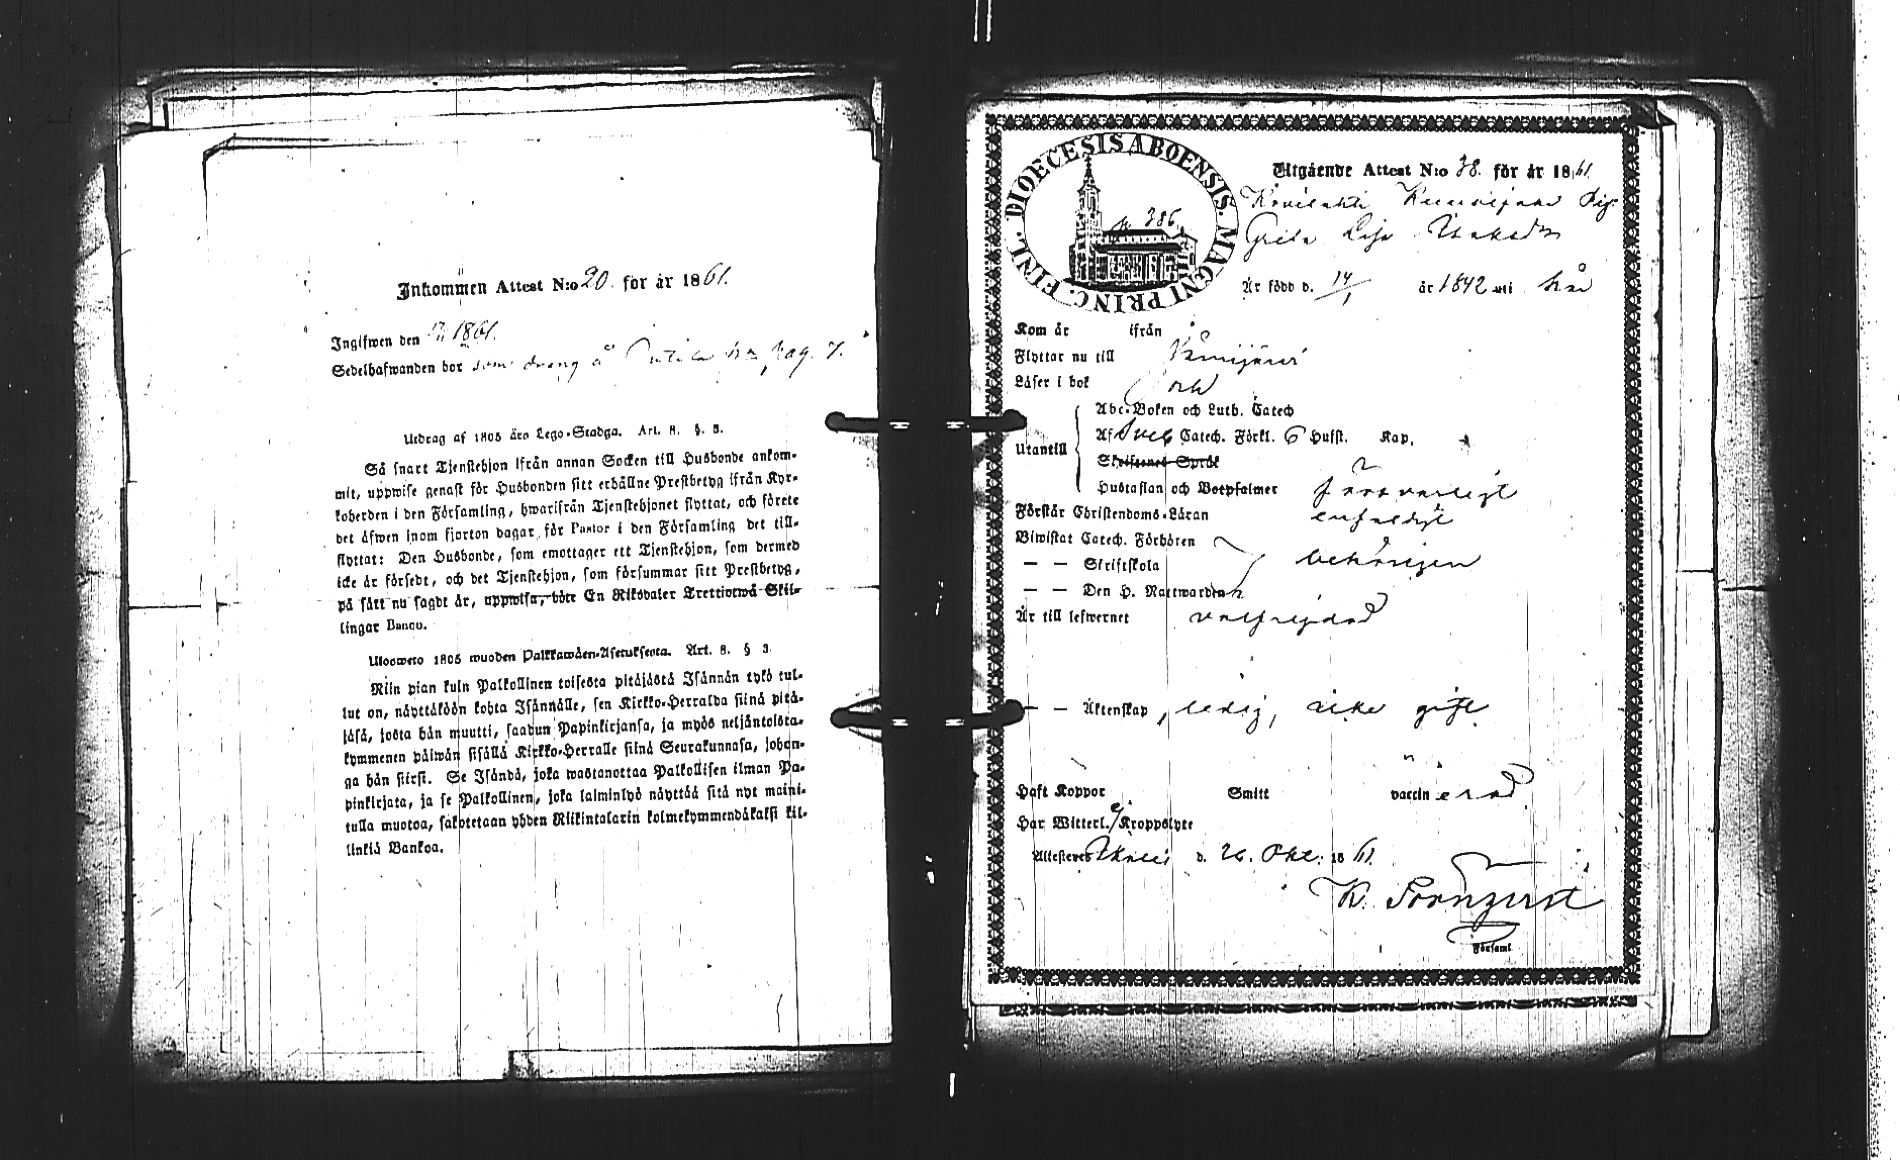 Inkommen Attest N:o 20. för år 1861.
Ingifwen den 1861.
Sedelhafwanden bor som dräng å pag. 7.
Utdrag af 1805 års Lego-Stadga. Art. 8. §. 3.
Så snart Tjenstehjon ifrån annan Socken till Husbonde ankom-
mit, uppwise genast för Husbonden sitt erhållne Prestbetyg ifrån Kyr-
koherden i den Församling, hwarifrån Tjenstehjonet flyttat, och förete
det äfwen inom fjorton dagar för Pastor i den Församling det till-
flyttat: Den Husbonde, som emottager ett Tjenstehjon, som dermed
icke är försedt, och det Tjenstehjon, som försummar sitt Prestbetyg,
på sätt nu sagdt är, uppwisa, böte En Riksdaler Trettiotwå Skil-
lingar Banco.
Ulosweto 1805 wuoden Palkkawäen-Asetuksesta. Art. 8. § 3.
Niin pian kuin Palkollinen toisesta pitäjästä Isännän tykö tul-
lut on, näyttäköön kohta Isännälle, sen Kirkko-Herralda siinä pitä-
jäsä, josta hän muutti, saadun Papinkirjansa, ja myös neljäntoista-
kymmenen päiwän sisällä Kirkko-Herralle siinä Seurakunnasa, johon-
ga hän siirsi. Se Isändä, joka wastanottaa Palkollisen ilman Pa-
pinkirjata, ja se Palkollinen, joka laiminlyö näyttää sitä nyt maini-
tulla muotoa, sakotetaan yhden Riikintalarin kolmekymmendäkaksi kil-
linkiä Bankoa.
DIOECESIS ABOENSIS. MAGNI PRINC. FINL.
386
Utgående Attest N:o 38. för år 1861.
Pig.
Greta
Är född d. 14/1 år 1842 uti
Kom år ifrån
Flyttar nu till
Läser i bok
Utantill
Abc-Boken och Luth. Catech
Af Sveb Catech. Förkl. 6 Hufst. Kap.
Skriftenes Språk
Hustaflan och Botpsalmer försvarligt
Förstår Christendoms-Läran enfaldigt
Biwistat Catech. Förhören
— — Skriftskola behörigen
— — Den H. Nattwarden
Är till lefwernet välfrejdad
— — Äktenskap, ledig, icke gift.
Haft Koppor Smitt vaccinerad
Har Witterl. ej Kroppslyte
Attesteras d. 26. Okt. 1861.
K.
Församl